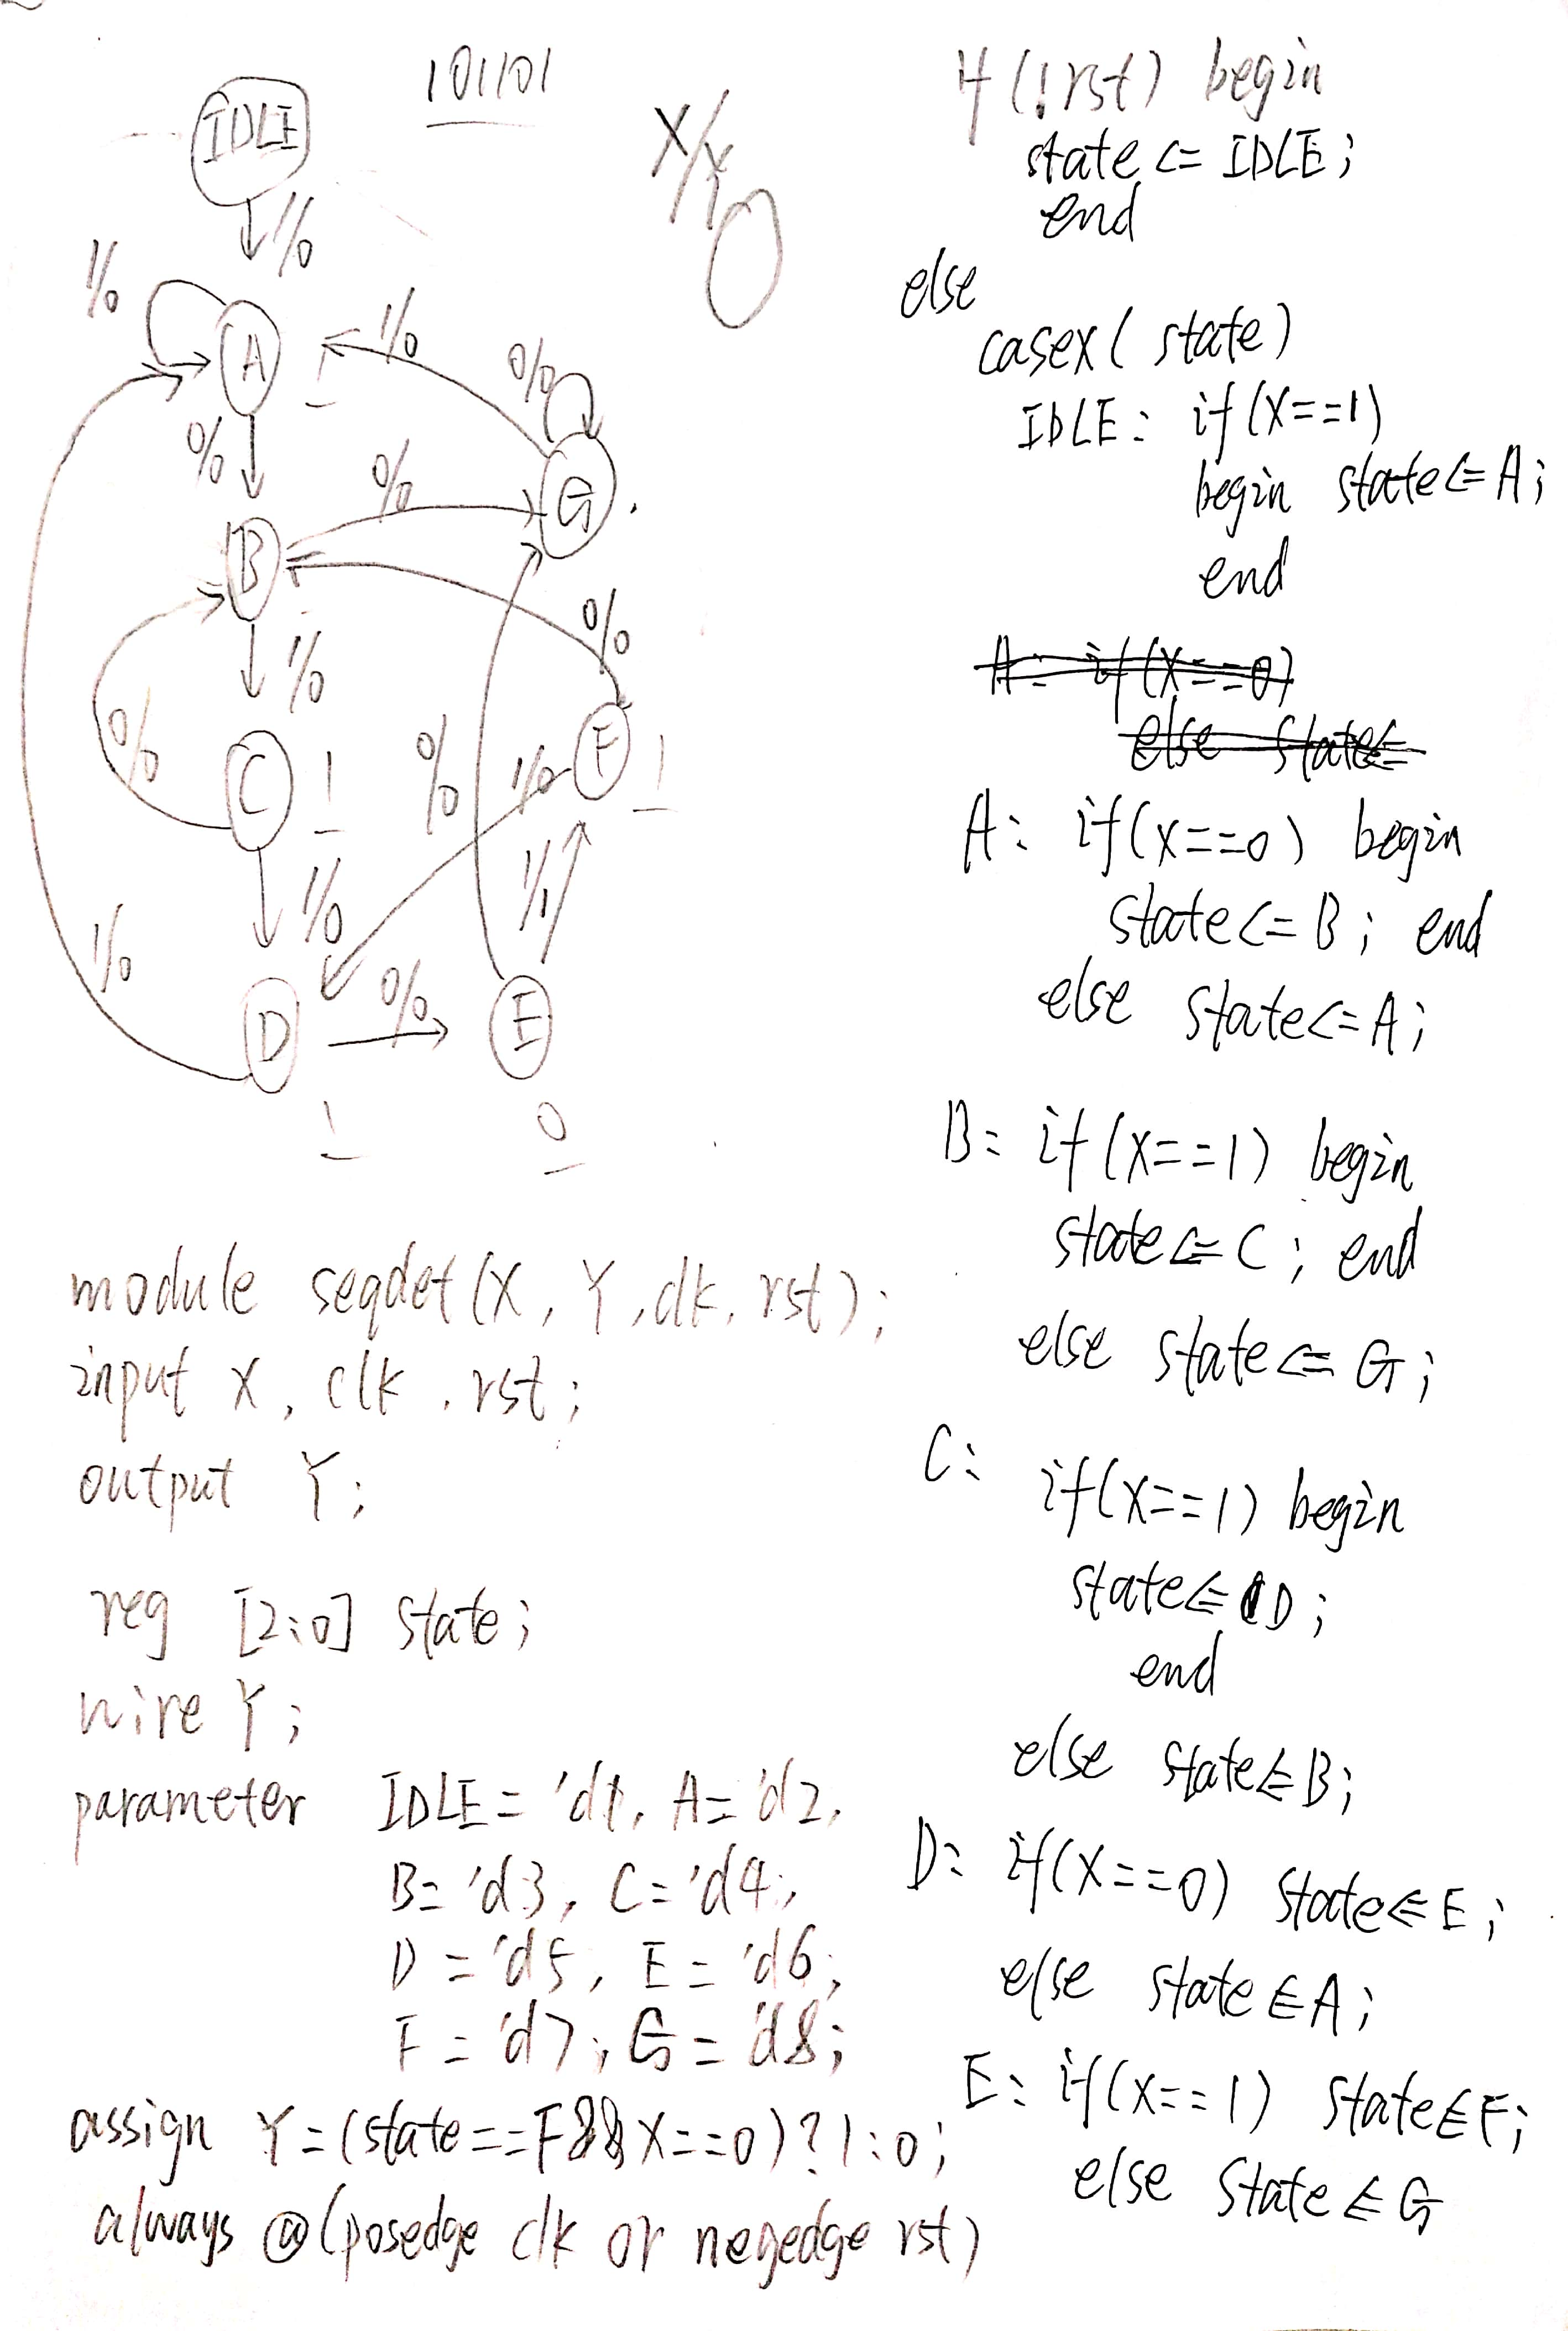 101101
X/Y
IDLE
1/0
1/0
A
1/0
0/0
0/0
0/0
G
B
1/0
0/0
0/0
C
1
0/0
1/0
F
1
1/0
1/0
1/1
D
0/0
E
1
0
module seqdet(X, Y, clk, rst);
input X, clk, rst;
output Y;
reg [2:0] state;
wire Y;
parameter IDLE = 'd1, A = 'd2,
B = 'd3, C = 'd4,
D = 'd5, E = 'd6,
F = 'd7, G = 'd8;
assign Y = (state == F && X==0) ? 1 : 0;
always @(posedge clk or negedge rst)
if (!rst) begin
state <= IDLE;
end
else
casex( state)
IDLE: if (X==1)
begin state <= A;
end
A: if (X==0)
else state<=
A: if(X==0) begin
state <= B; end
else state<=A;
B: if (X==1) begin
state <= C; end
else state <= G;
C: if(X==1) begin
state <= D;
end
else state <= B;
D: if(X==0) state <= E;
else state <= A;
E: if(X==1) state <= F;
else state <= G